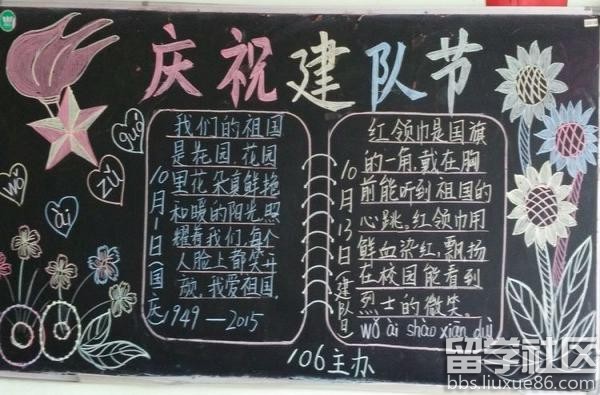 庆祝建队节
wǒ
ài
zǔ
guó
我们的祖国
是花园,花园
里花朵真鲜艳
和暖的阳光照
耀着我们,每个
人脸上都笑开
颜,我爱祖国.
1949—2015
10月1日国庆
红领巾是国旗
的一角,戴在胸
前能听到祖国的
心跳,红领巾用
鲜血染红,飘扬
在校园能看到
烈士的微笑.
wǒ ài shào xiān duì
10月13日(建队日
106主办
留学社区
bbs.liuxue86.com